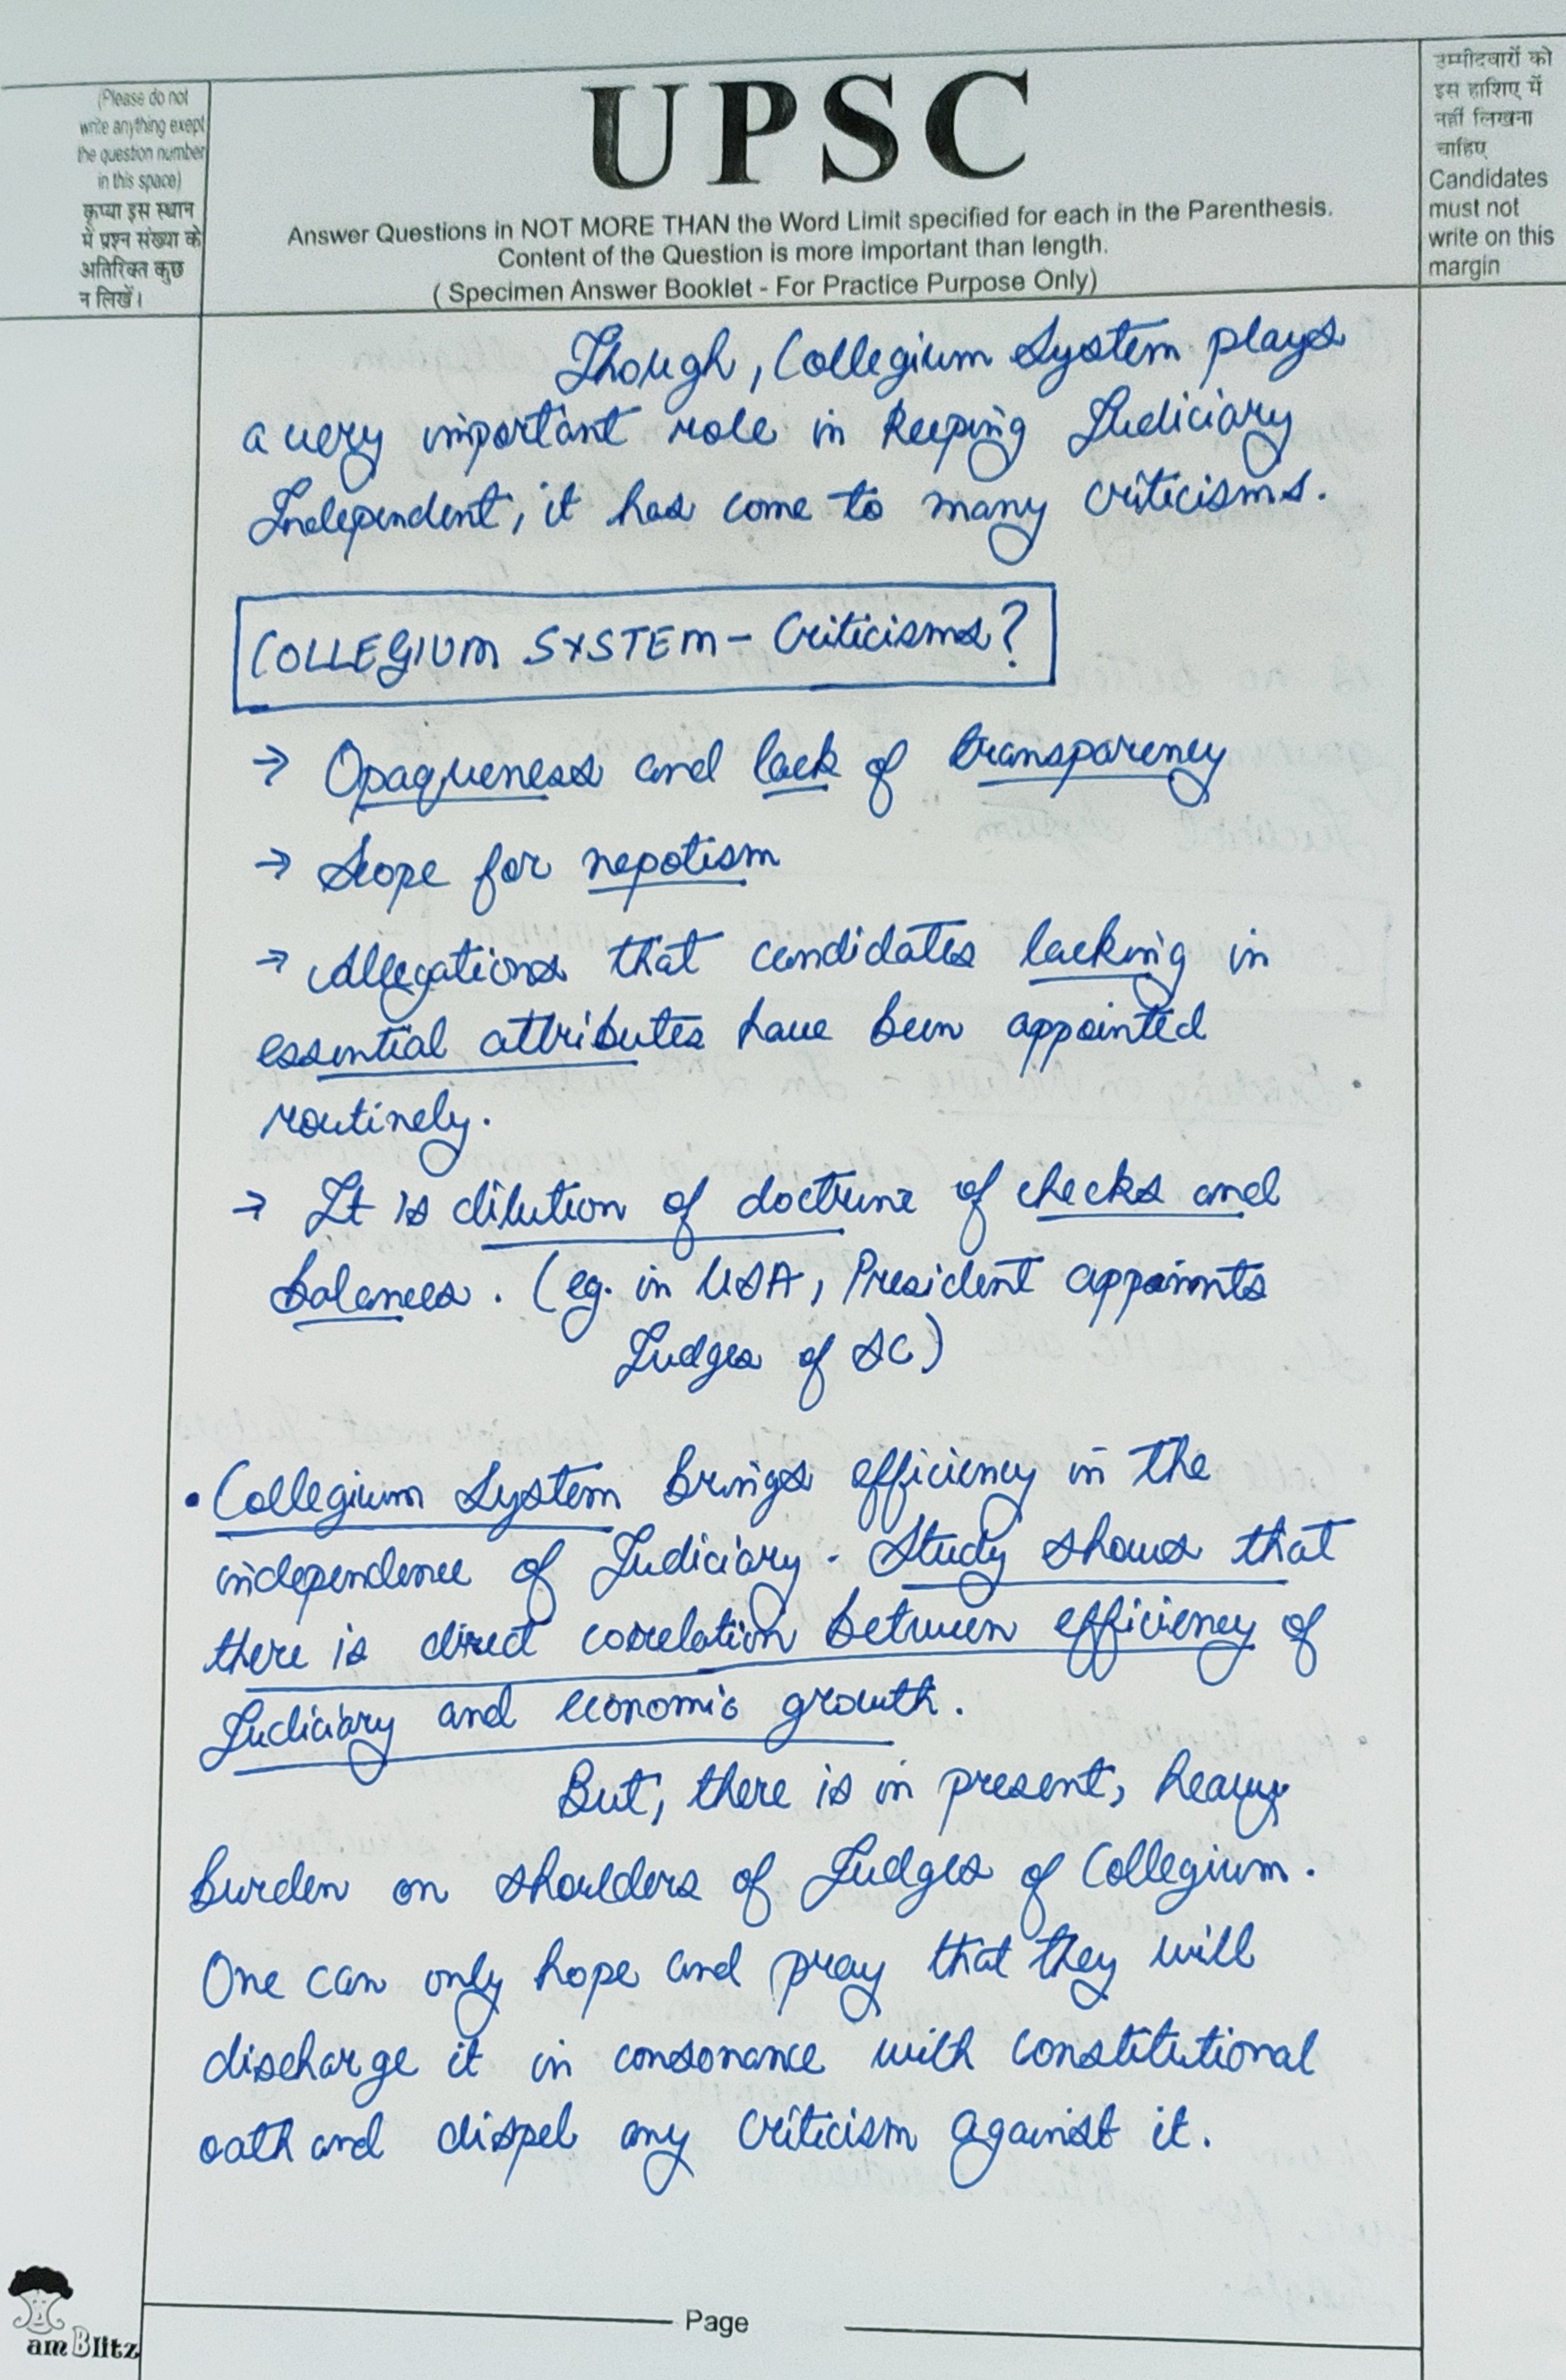 (Please do not
write anything exept
the question number
in this space)
कृप्या इस स्थान
में प्रश्न संख्या के
अतिरिक्त कुछ
न लिखें।
UPSC
Answer Questions in NOT MORE THAN the Word Limit specified for each in the Parenthesis.
Content of the Question is more important than length.
( Specimen Answer Booklet - For Practice Purpose Only)
उम्मीदवारों को
इस हाशिए में
नहीं लिखना
चाहिए
Candidates
must not
write on this
margin
Though, Collegium System plays
a very important role in keeping Judiciary
Independent, it has come to many criticisms.
COLLEGIUM SYSTEM - Criticisms?
→ Opaqueness and lack of transparency
→ Scope for nepotism
→ Allegations that candidates lacking in
essential attributes have been appointed
routinely.
→ It is dilution of doctrine of checks and
balances. (eg. in USA, President appoints
Judges of SC)
• Collegium System brings efficiency in the
independence of Judiciary. Study shows that
there is direct correlation between efficiency of
Judiciary and economic growth.
But, there is in present, heavy
burden on shoulders of Judges of Collegium.
One can only hope and pray that they will
discharge it in consonance with constitutional
oath and dispel any criticism against it.
Page
amBlitz